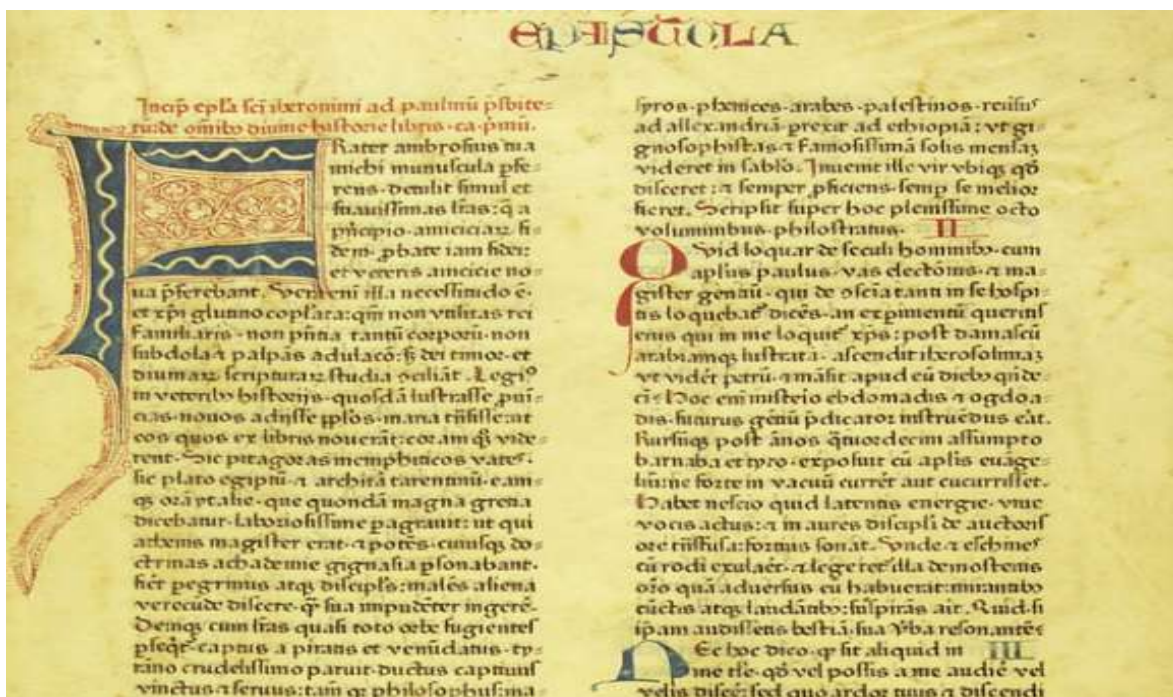 EPISTOLA
Incip̄ epl̄a sc̄i iheronimi ad paulinū p̄sbite=
rū de om̄ibꝫ diuine historie libris · ca · p̄mū.
FRater ambrosius tua
michi munuscula ꝑfe=
rens · detulit simul et
suauissimas l̄ras : q̄ a
p̄ncipio amiciciaꝝ fi=
dem · ꝓbate iam fidei :
et veteris amicicie no=
ua p̄ferebant. Vera em̄ illa necessitudo ē ·
et xp̄i glutino copl̄ata : qm̄ non vtilitas rei
familiaris · non p̄ntia tantū corporū · non
subdola ⁊ palpās adulac̄o : sꝫ dei timor · et
diuinaꝝ scripturaꝝ studia ꝯciliāt. Legiꝰ
in veteribꝫ historijs · quosdā lustrasse ꝓuī=
cias · nouos adijsse pp̄los · maria trāsisse : ut
eos quos ex libris nouerāt : coram qꝫ vide=
rent. Sic pitagoras memphiticos vates ·
sic plato egiptū · ⁊ architā tarentinū · eam=
qꝫ orā ytalie · que quondā magna grecia
dicebatur · laboriosissime ꝑagrauit : ut qui
athenis magister erat · ⁊ potēs · cuiusqꝫ do=
ctrinas achademie gignasia ꝑsonabant ·
fieret peregrinus atqꝫ discipl̄s : malēs aliena
verecūde discere · qꝫ sua impudēter ingerē ·
Deniqꝫ cum l̄ras quasi toto orbe fugientes
ꝑseq̄t᷑ · captus a piratis et venūdatus · ty=
rāno crudelissimo paruit · ductus captiuus
vinctus ⁊ seruus : tam̄ qꝫ philosophus : ma
syros · phenices · arabes · palestinos · reuisus
ad allexandriā · prexit ad ethiopiā : vt gi=
gnosophistas ⁊ famosissimā solis mensaꝫ
videret in sablo. Inuenit ille vir vbiqꝫ qd̄
disceret : ⁊ semper ꝓficiens · semꝑ se melior
fieret. Scripsit super hoc plenissime octo
voluminibus · philostratus. II
QVid loquar de seculi hominibꝫ · cum
apl̄us paulus · vas electōnis · ⁊ ma=
gister gentiū · qui de ꝯsciā tanti in se hospi=
tis loquebat᷑ dicēs · an exꝑimentū queritis
eius qui in me loquit᷑ xp̄s : post damascū
arabiamqꝫ lustratā · ascendit iherosolimaꝫ
vt vidēt petrū · ⁊ māsit apud eū diebꝫ qn̄de=
cī · Hoc em̄ misterio ebdomadis ⁊ ogdoa=
dis · futurus gentiū p̄dicator instruēdus eāt.
Rursūqꝫ post ānos q̄tuordecim assumpto
barnaba et tyto · exposuit cū apl̄is euāge=
liū : ne forte in vacuū currēt aut cucurrisset.
Habet nescio quid latentis energie · viue
vocis actus : ⁊ in aures discipl̄i de auctoris
ore trāsfusa : fortius sonat. Vnde ⁊ eschines
cū rodi exularēt · ⁊ legeret᷑ illa demostenis
orō quā aduersus eū habuerat : mirantibꝫ
cūctis atqꝫ laudātibꝫ : suspirās ait. Quid si
ip̄am audissetis bestiā · sua v̄ba resonantē
NEc hoc dico · qꝫ sit aliquid in III
me tl̄e · qd̄ vel possis a me audiē vel
velis discē : sed quo ardor tuus ⁊ discendi